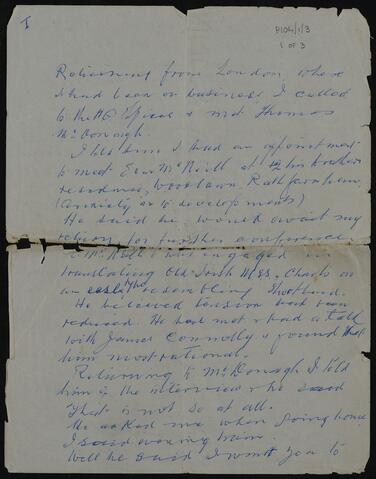 I
P104/1/3
1 OF 3
Returning from London where
I had been on business I called
to the HQ Office & met Thomas
McDonagh.
I told him I had an appointment
to meet Eoin McNeill at his brothers
residence, Woodtown, Rathfarnham
(Anxiety as to developments)
He said he would await my
return for further conference
McNeill was engaged in
translating Old Irish MSS. Charts on
an resembling Shorthand.
He believed tension had been
reduced. He had met & had a talk
with James Connolly & found
him most rational.
Returning to McDonagh I told
him of the interview & he said
That is not so at all.
He asked me when going home
I said evening train.
Well he said I want you to